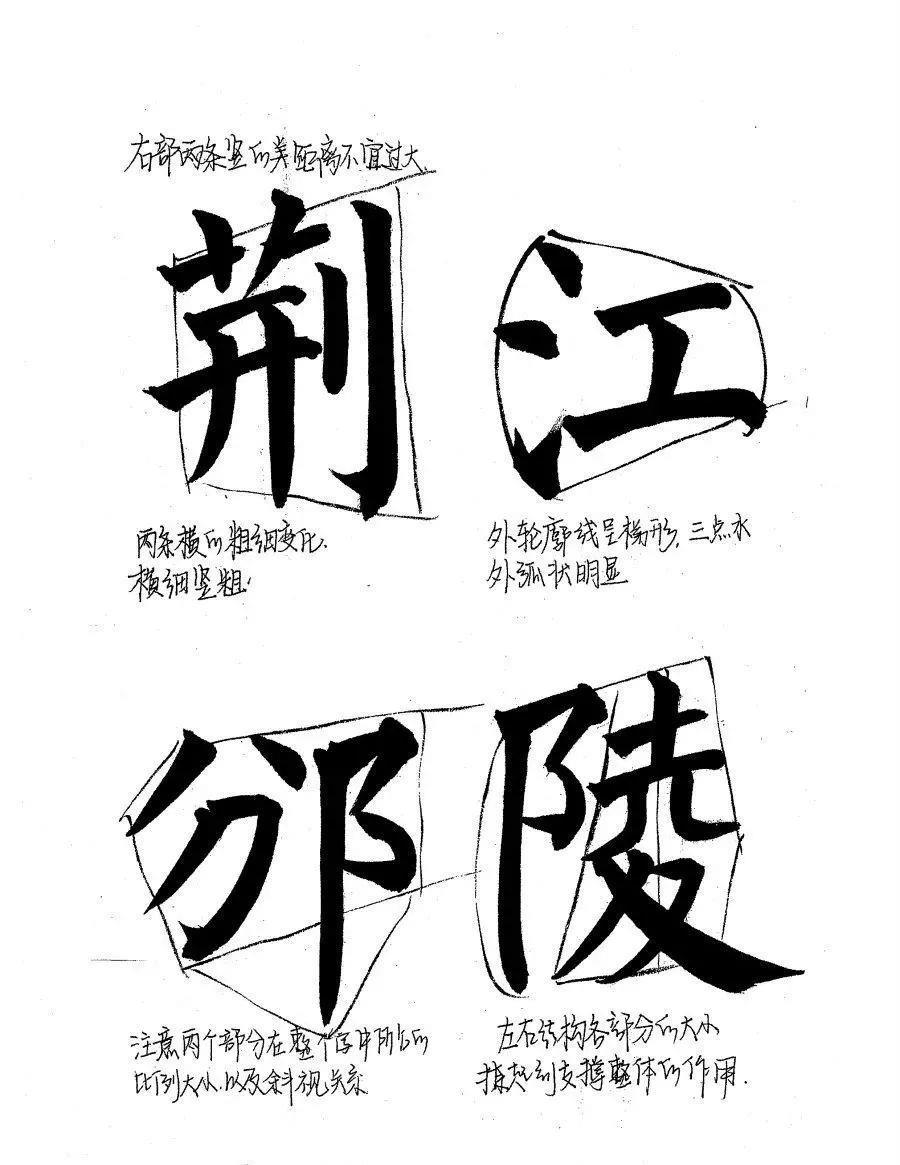 右部两条竖的距离不宜过大.
荆
江
两条横的粗细变化、
横细竖粗.
外轮廓线呈梯形,三点水
外弧状明显
邠
陵
注意两个部分在整个字中所占的
比例大小.以及斜视关系
左右结构各部分的大小
捺起到支撑整体的作用.